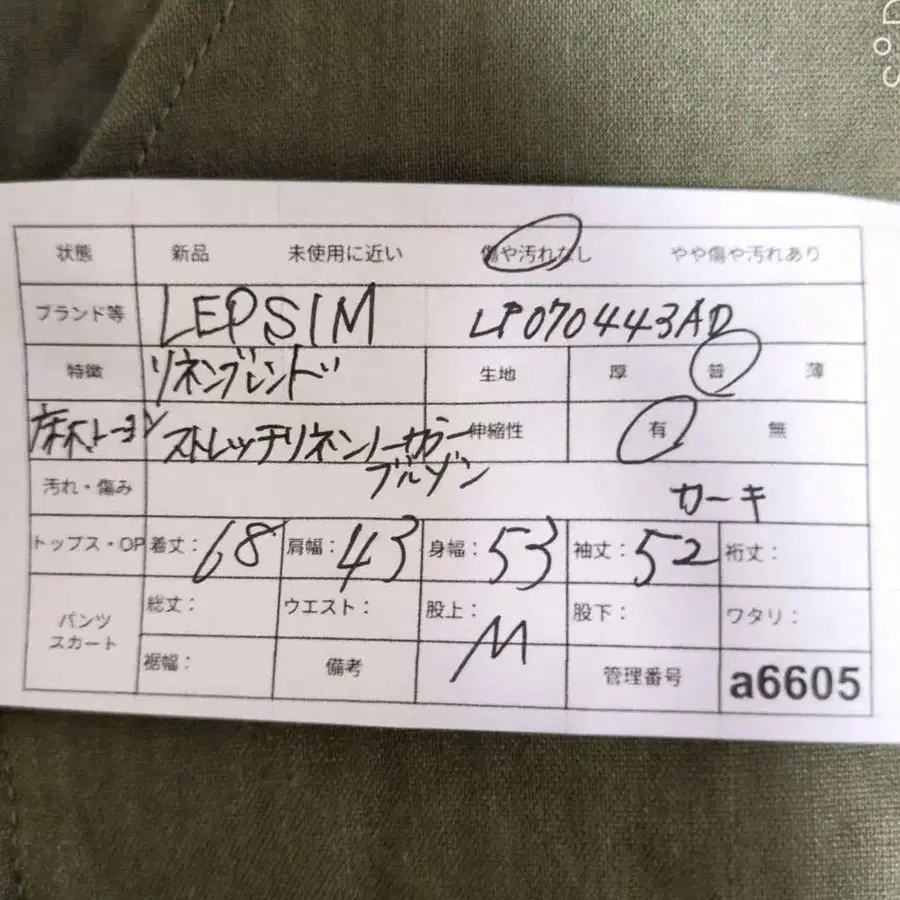 SOD
状態 新品 未使用に近い 傷や汚れなし やや傷や汚れあり
ブランド等 LEPSIM LP070443AD
特徴 リネンブレンド 生地 厚 普 薄
麻レーヨン ストレッチリネンノーカラー 伸縮性 有 無
ブルゾン
汚れ・傷み カーキ
トップス・OP 着丈: 68 肩幅: 43 身幅: 53 袖丈: 52 裄丈:
パンツ 総丈: ウエスト: 股上: M 股下: ワタリ:
スカート
裾幅: 備考 管理番号 a6605